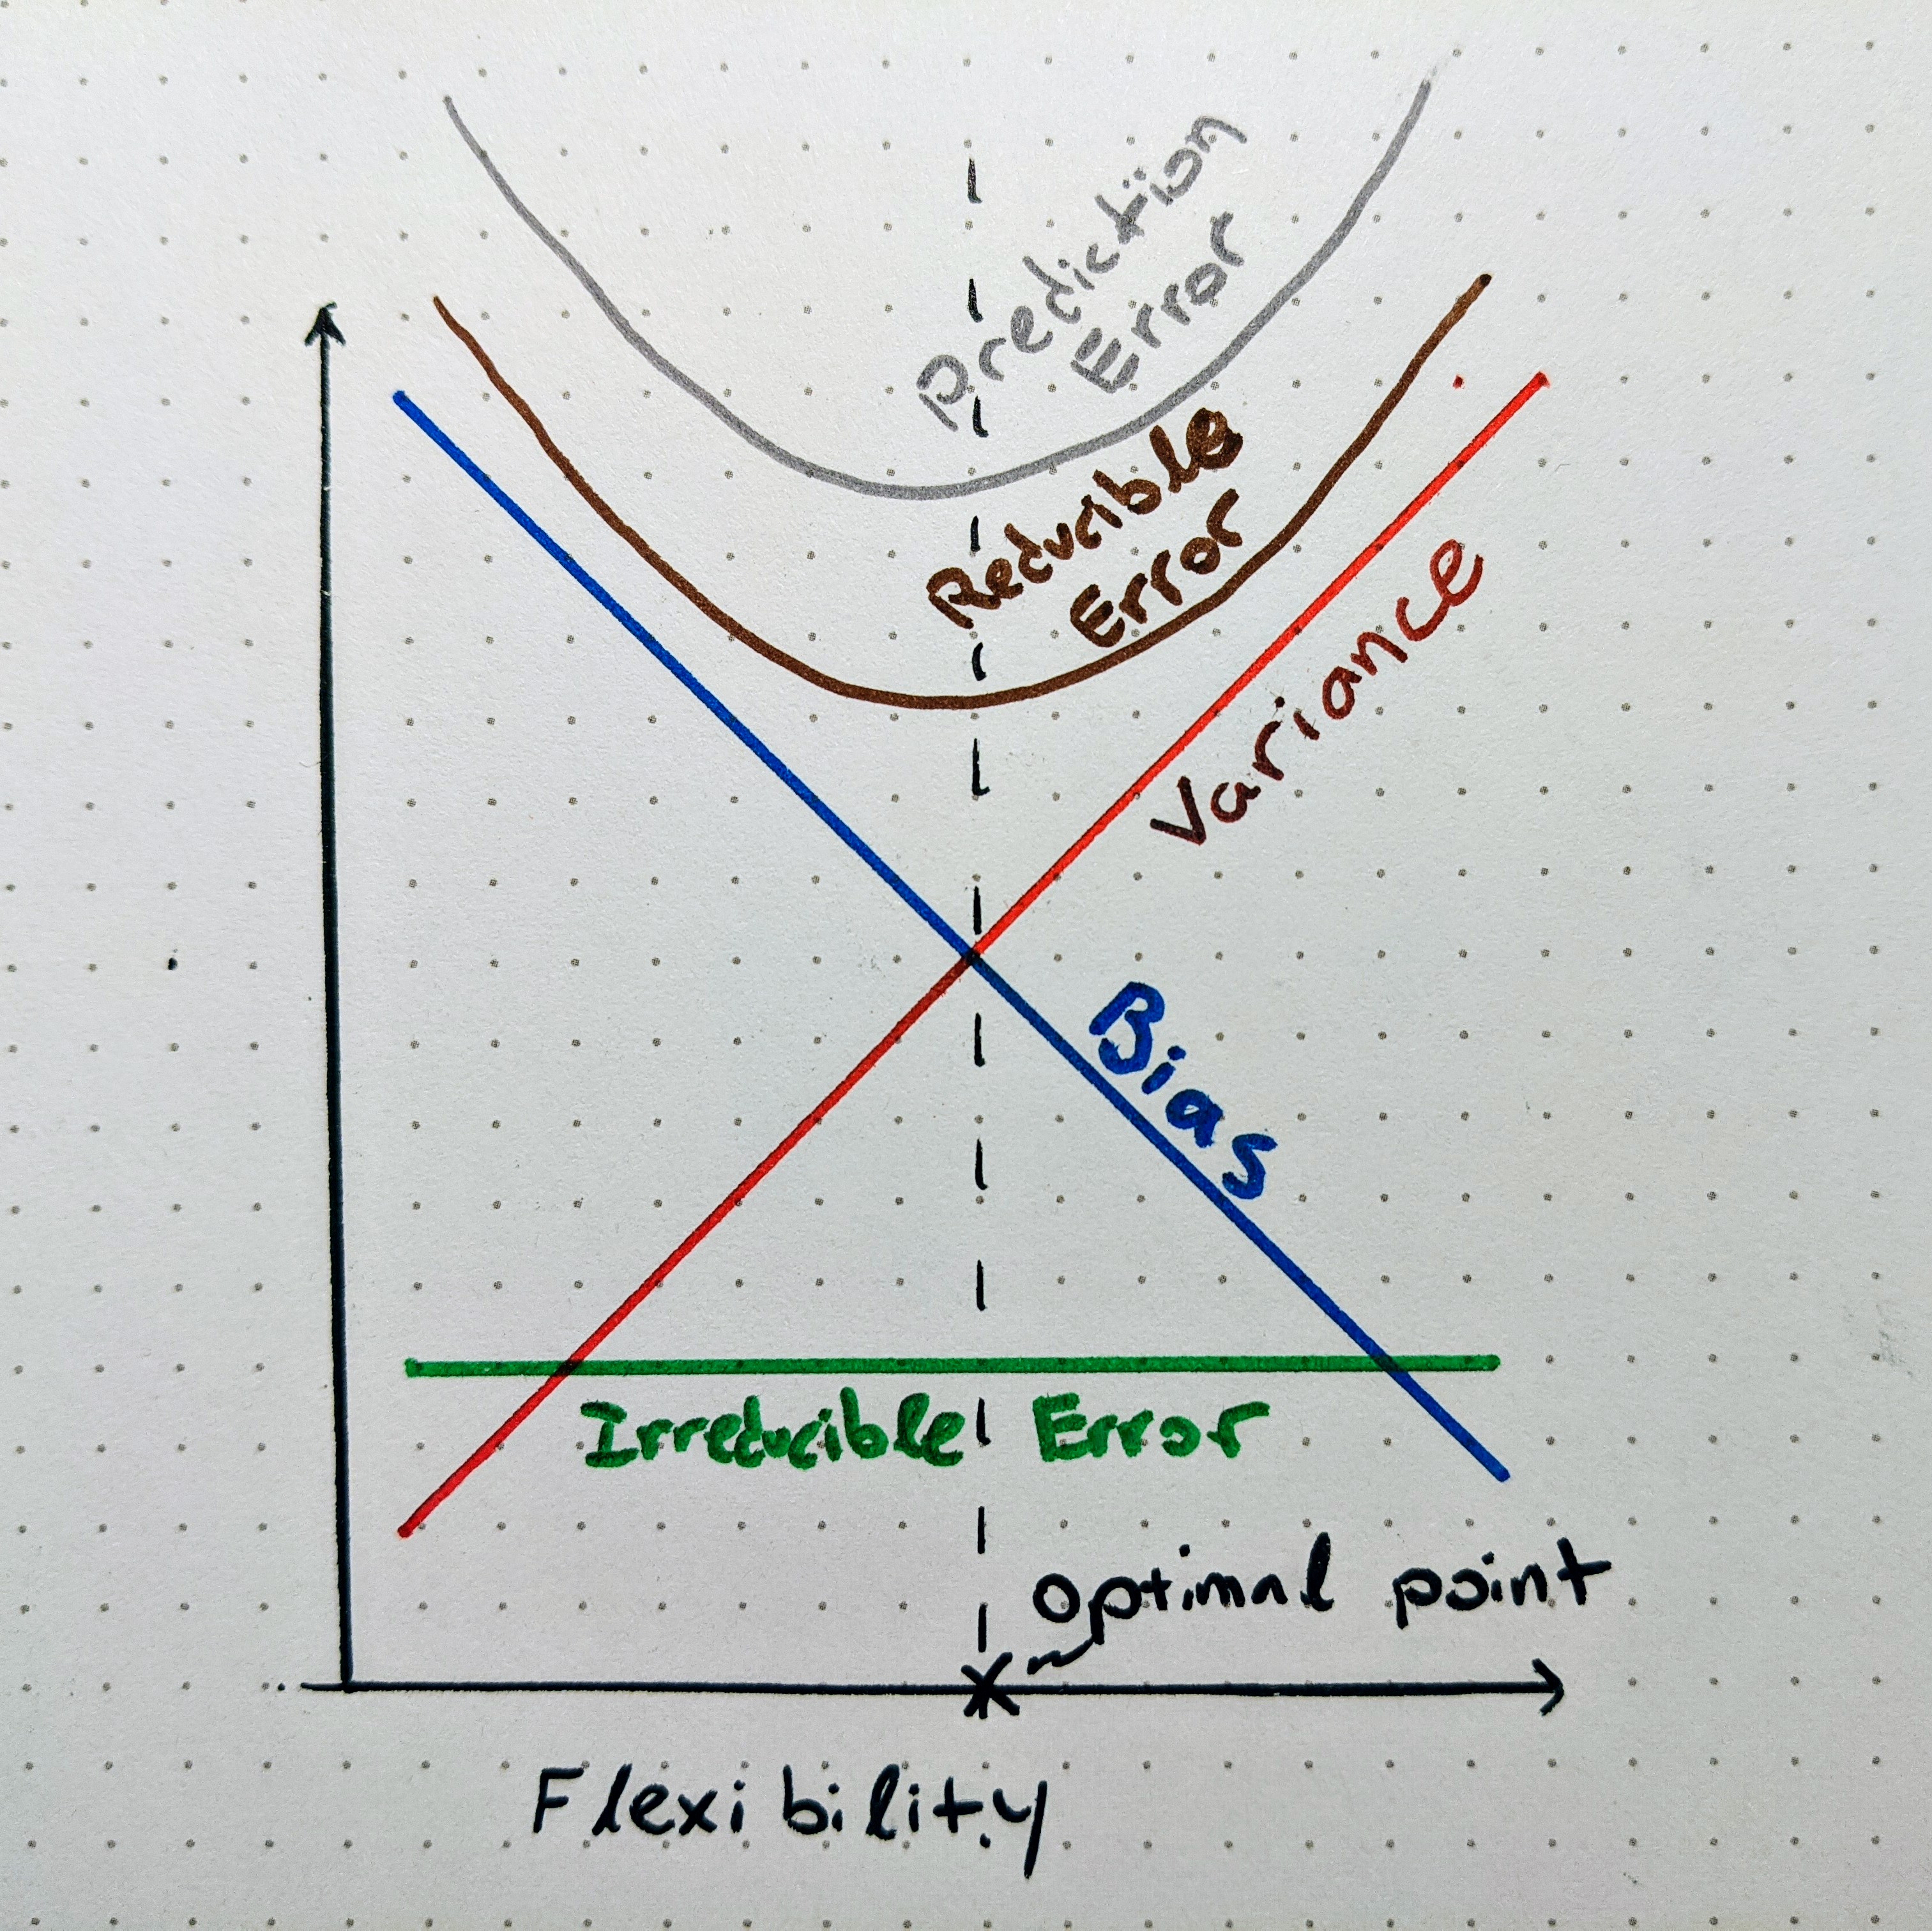 Prediction
Error
Reducible
Error
Variance
Bias
Irreducible Error
optimal point
Flexibility